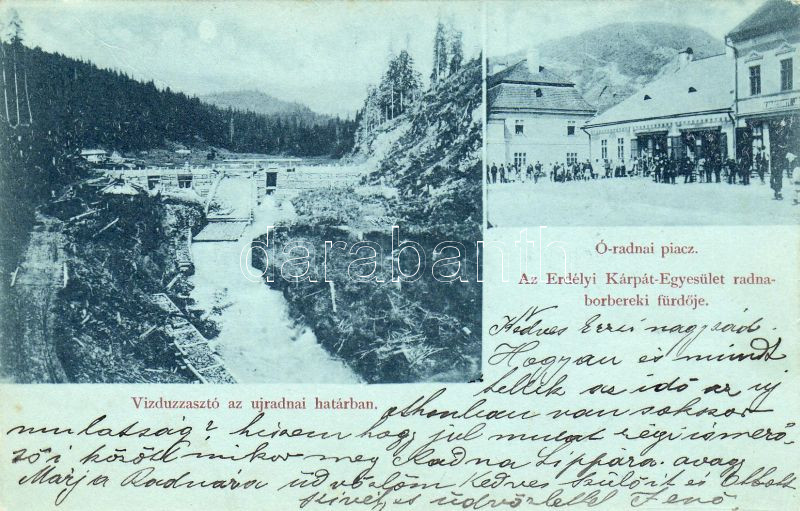 Ó-radnai piacz.
Az Erdélyi Kárpát-Egyesület radna-
borbereki fürdője.
Vizduzzasztó az ujradnai határban.
darabanth
Kedves Erzsi nagysád.
Hogyan és mindt
tellik az idő az uj
otthonban van sokszor
mulatság? hiszem hogy jul mulat régi ismerő-
sői között mikor meg Radna Lippára. avagy
Márja Radnára üdvözlöm Kedves Szülőit és
szivélyes üdvözlettel Jenő